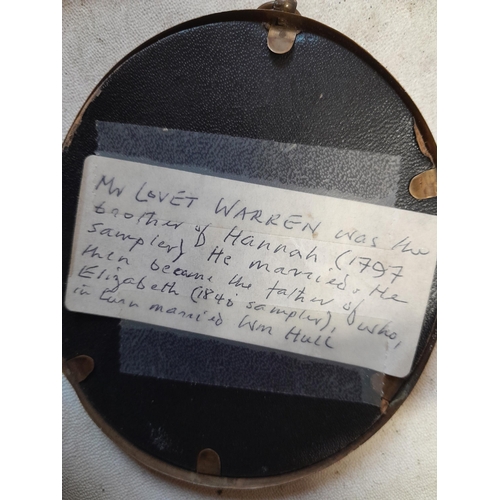 Mr LOVET WARREN was the
brother of Hannah (1797
sampler) He married. He
then became the father of who,
Elizabeth (1840 sampler),
in turn married Wm Hull